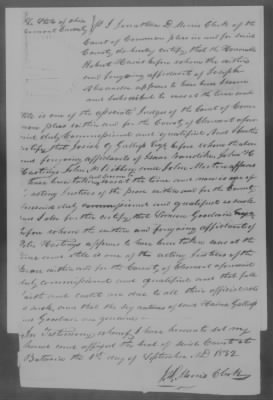 The State of Ohio
Clermont County
I Jonathan D. Morris Clerk of the
Court of Common pleas in and for said
County do hereby certify, that the Honorable
Robert Haines before whom the within
and foregoing affidavits of Joseph
Alexander appears to have been Sworn
and Subscribed to was at the time and
still is one of the associate Judges of the Court of Com
mon pleas within and for the County of Clermont afore
said duly Commissioned and qualified And I further
certify, that Josiah Gallup Esqr before whom the within
and foregoing affidavits of Isaac John H.
Hastings John and John appears
to have been taken was at the time and now is one of
the acting Justices of the peace within and for the County
aforesaid duly commissioned and qualified as such
And I also further certify that Goodwin Esqr
before whom the within and foregoing affidavit of
Hastings appears to have been taken was at the
time and still is one of the acting Justices of the
Peace within and for the County of Clermont aforesaid
duly commissioned and qualified and that full
faith and credit are due to all their official acts
as such, and that the Signatures of said Haines Gallup
and Goodwin are genuine
In Testimony whereof I have hereunto set my
hand and affixed the Seal of said Court at
Batavia the day of September AD 1832
J. D. Morris Clerk